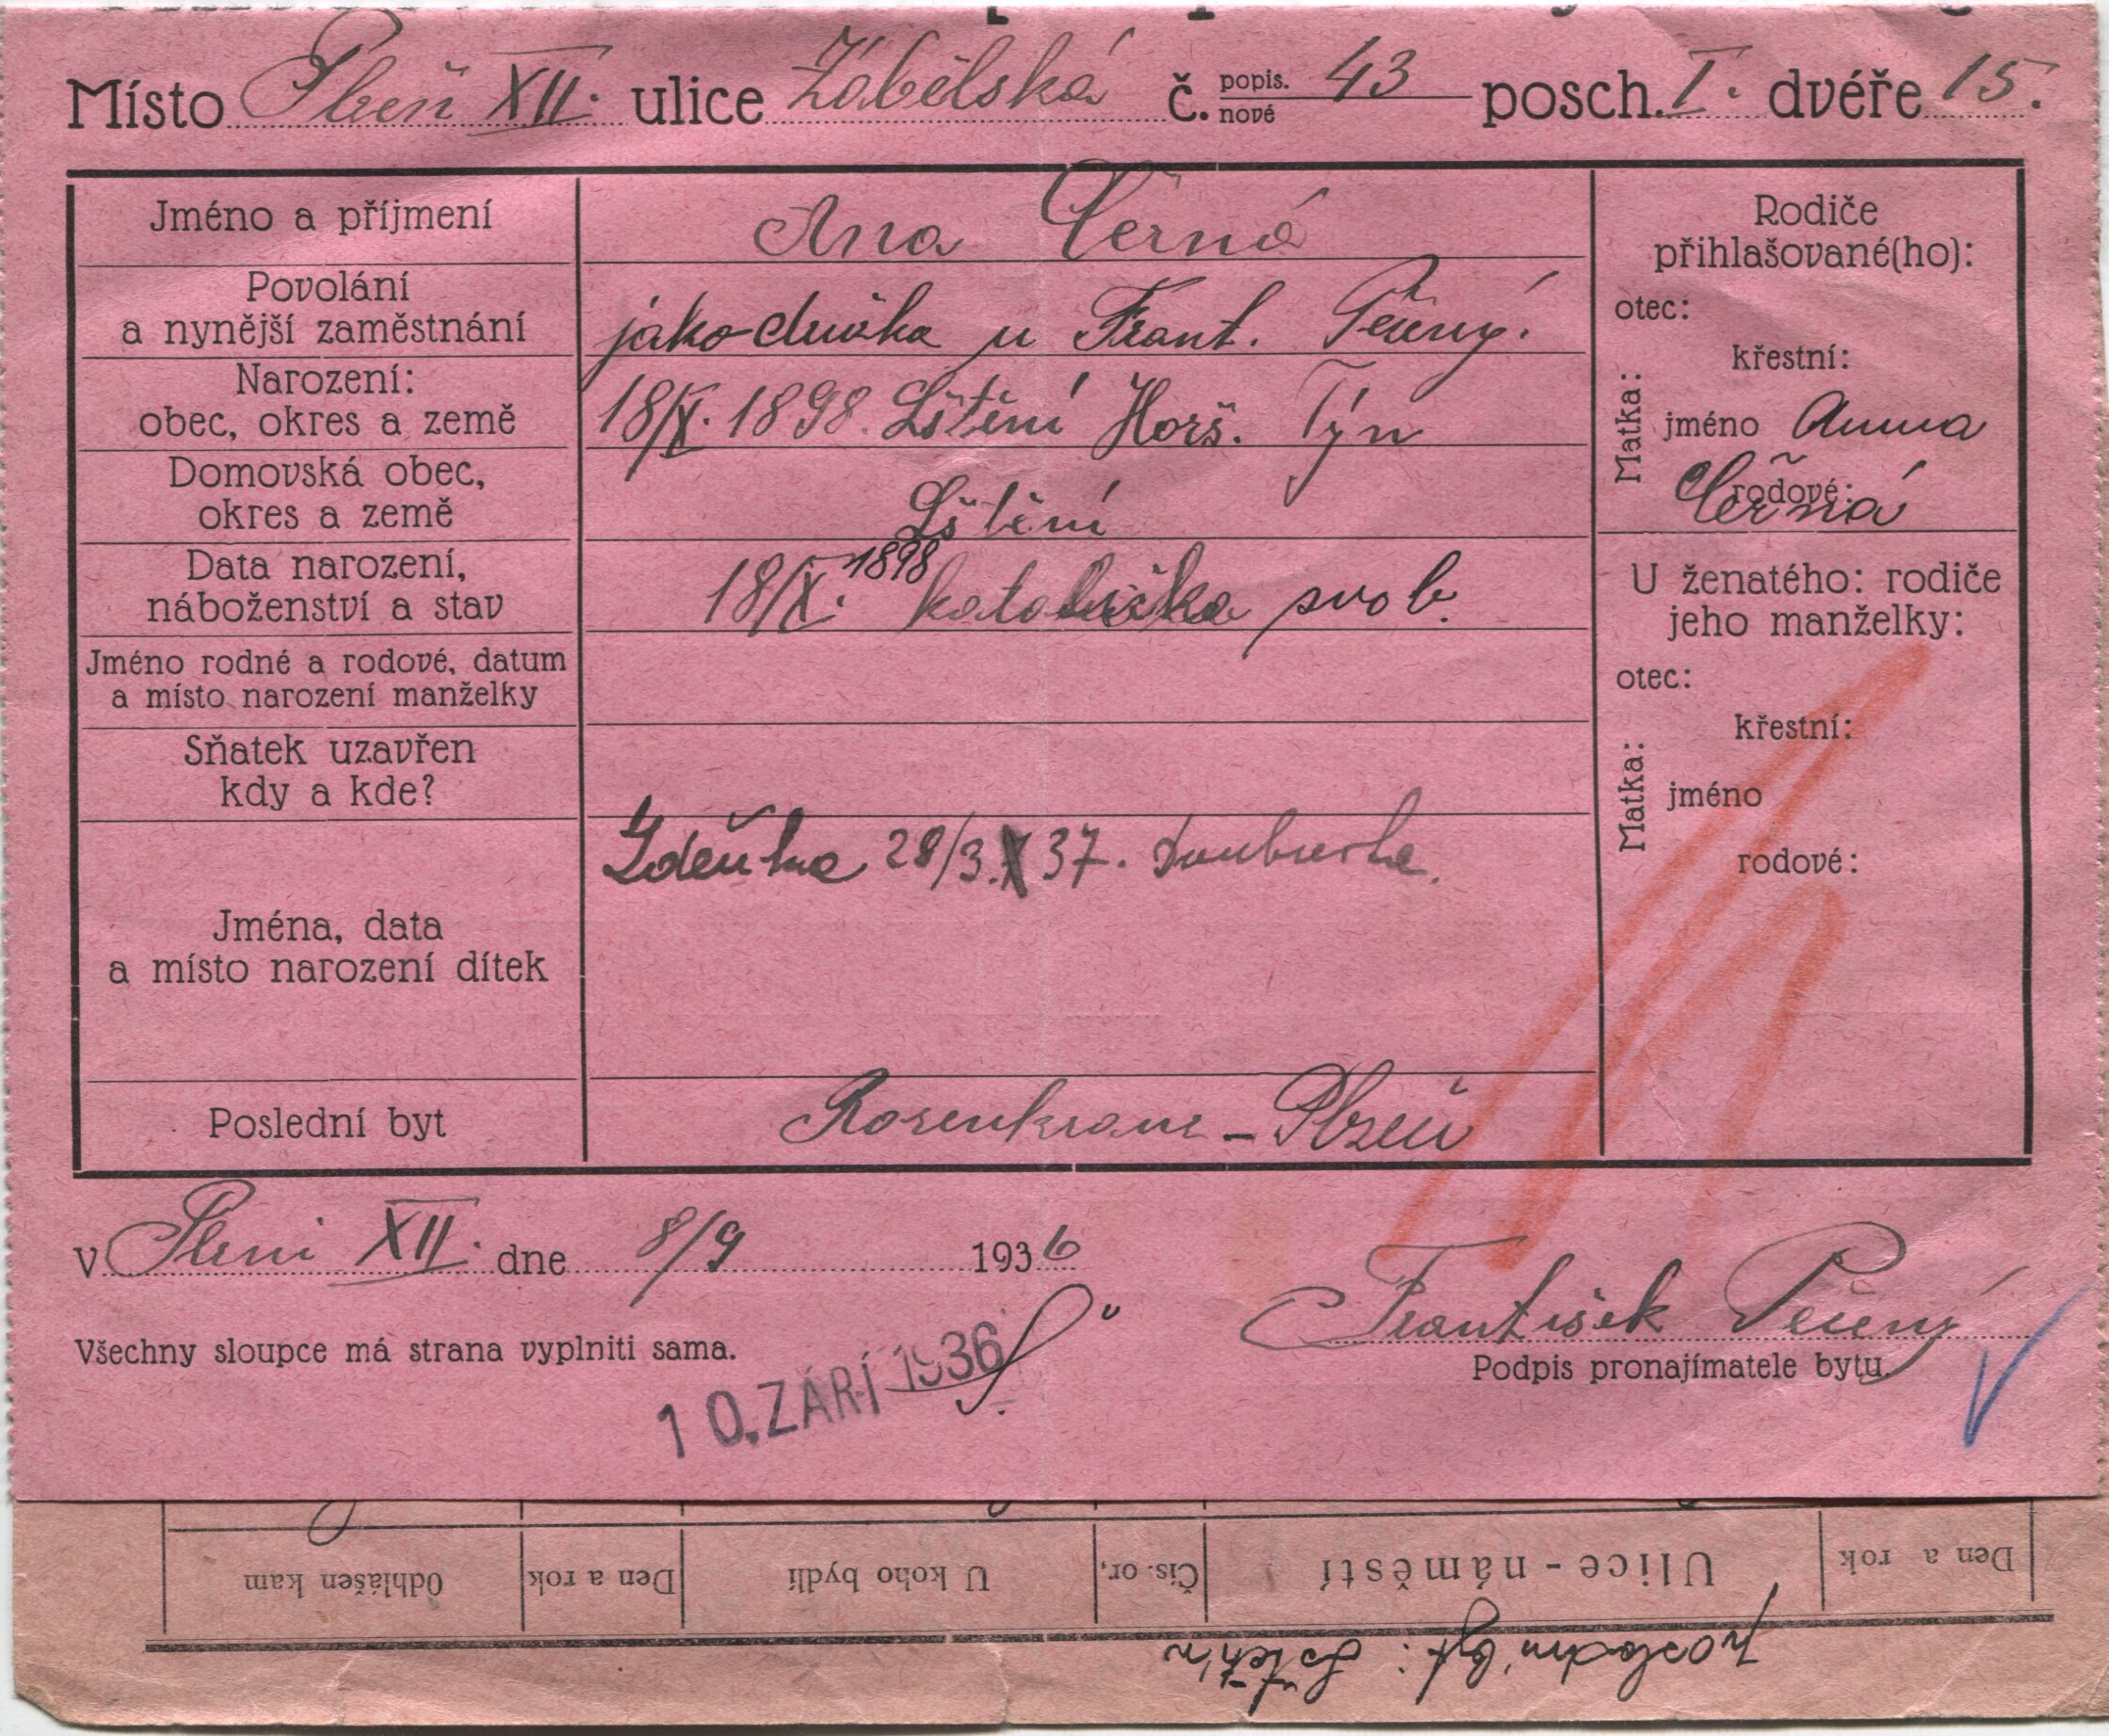 Místo Plzeň XII. ulice Zábělská č. popis. nové 43 posch. I. dvéře 15.
Jméno a příjmení Ana Černá
Rodiče
přihlašované(ho):
Povolání
a nynější zaměstnání jako družka u Frant. Pěčený.
otec:
křestní:
Narození:
obec, okres a země 18/X. 1898. Lštění Horš. Týn
Matka: jméno Anna
Domovská obec,
okres a země Lštění
rodové: Černá
Data narození,
náboženství a stav 18/X. 1898 katolička svob.
U ženatého: rodiče
jeho manželky:
Jméno rodné a rodové, datum
a místo narození manželky
otec:
křestní:
Sňatek uzavřen
kdy a kde?
Matka: jméno
rodové:
Zdeňka 28/3. 37. Doubravka.
Jména, data
a místo narození dítek
Poslední byt Rosenkranz - Plzeň
V Plzni XII. dne 8/9 1936
František Pěčený
Všechny sloupce má strana vyplniti sama.
Podpis pronajímatele bytu.
10. ZÁŘÍ 1936
Den a rok Ulice - náměstí Čís. or. U koho bydlí Den a rok Odhlášen kam
poslední byt: Lštění